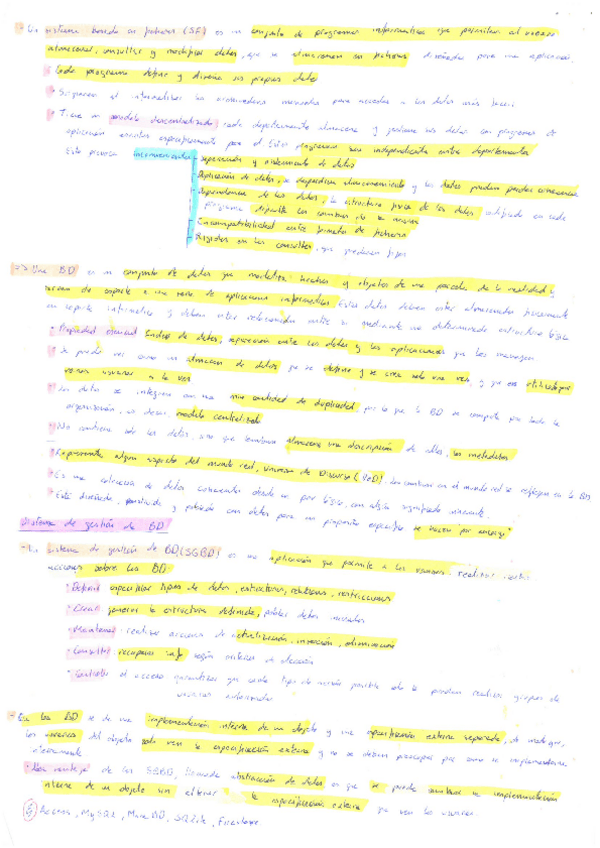 - Un sistema basado en ficheros (SF) es un conjunto de programas informáticos que permiten al usuario
almacenar, consultar y modificar datos, que se almacenan en ficheros diseñados para una aplicación.
Cada programa define y diseña sus propios datos
Surgieron al informatizar los
Tiene un modelo descentralizado, cada departamento almacena y gestiona sus datos con programas de
aplicación escritos específicamente para él. Estos programas son independientes entre departamentos
inconvenientes - Separación y aislamiento de datos
Duplicación de datos, se desperdicia almacenamiento y los datos pueden perder coherencia
Dependencia de los datos, la estructura física de los datos codificada en cada
programa
Incompatibilidad entre formatos de ficheros
en las consultas, que
=> Una BD es un conjunto de datos que modeliza hechos y objetos de una parcela de la realidad y
sirven de soporte a una serie de aplicaciones informáticas. Estos datos deben estar almacenados físicamente
en soporte informático y deben estar relacionados entre sí mediante una determinada estructura lógica
Propiedad esencial: de datos, separación entre los datos y las aplicaciones que los manejan
Se puede ver como un almacén de datos que se define y se crea solo una vez, y que es utilizado por
varios usuarios a la vez
Los datos se integran con una mín cantidad de duplicidad, por lo que la BD se comparte por toda la
organización, es decir, modelo centralizado
No contiene solo los datos, sino que también almacena una descripción de ellos, los metadatos
Representa algún aspecto del mundo real, Universo de Discurso (UoD). Los cambios en el mundo real se reflejan en la BD
Es una colección de datos coherentes desde un pto lógico, con algún significado inherente
Está diseñada, construida y poblada con datos para un propósito específico
Sistema de gestión de BD
- Un Sistema de gestión de BD (SGBD) es una aplicación que permite a los usuarios realizar
acciones sobre las BD:
Definir: especificar tipos de datos, estructuras, relaciones, restricciones
Crear: generar la estructura definida, poblar datos iniciales
Mantener: realizar acciones de actualización, inserción, eliminación
Consultar: recuperar info según criterios de elección
Controlar: el acceso garantizar que cada tipo de acción posible solo la puedan realizar grupos de
usuarios autorizados
- En las BD se da una implementación interna de un objeto y una especificación externa separada, de modo que,
los usuarios del objeto solo ven la especificación externa y no se deben preocupar por como se implementa
internamente
Una ventaja de los SGBD, llamada abstracción de datos es que se puede cambiar la implementación
interna de un objeto sin alterar la especificación externa que ven los usuarios.
Access, MySQL, MariaDB, SQLite, Firestore